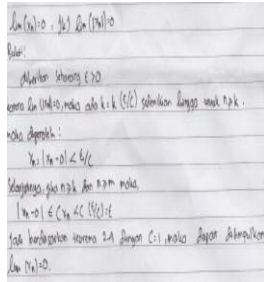 lim (xn)=0 , jika lim (|xn|)=0
Bukti:
diberikan sebarang ε>0.
karena lim (|xn|)=0, maka ada k = k (ε/c) sedemikian hingga untuk n≥k.
maka diperoleh :
xn = |xn-0| < ε/c
Selanjutnya, jika n≥k dan n≥m maka,
|xn-0| ≤ C xn < C (ε/c) = ε
Jadi berdasarkan teorema 2.1 dengan C=1, maka dapat disimpulkan
lim (xn)=0.